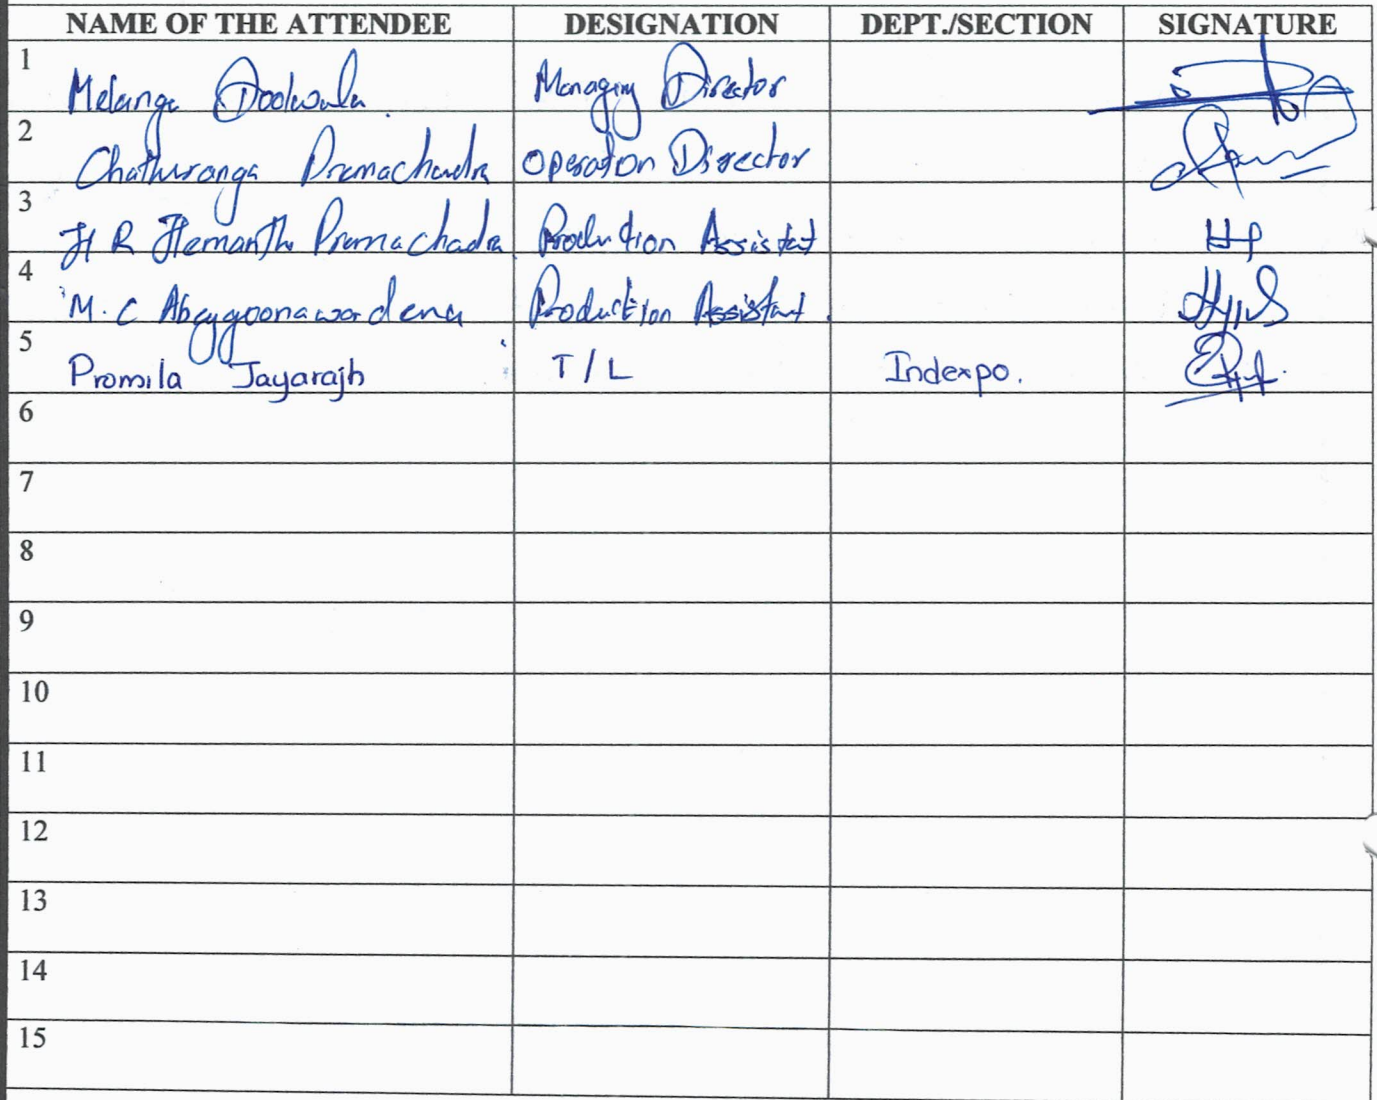 NAME OF THE ATTENDEE DESIGNATION DEPT./SECTION SIGNATURE
1 Melanga Managing Director
2 Chathuranga Premachandra Operation Director
3 H R Hemantha Premachadra Production Assistant HP
4 M. C Abeygoonawardena Production Assistant.
5 Promila Jayarajh T/L Indexpo.
6
7
8
9
10
11
12
13
14
15